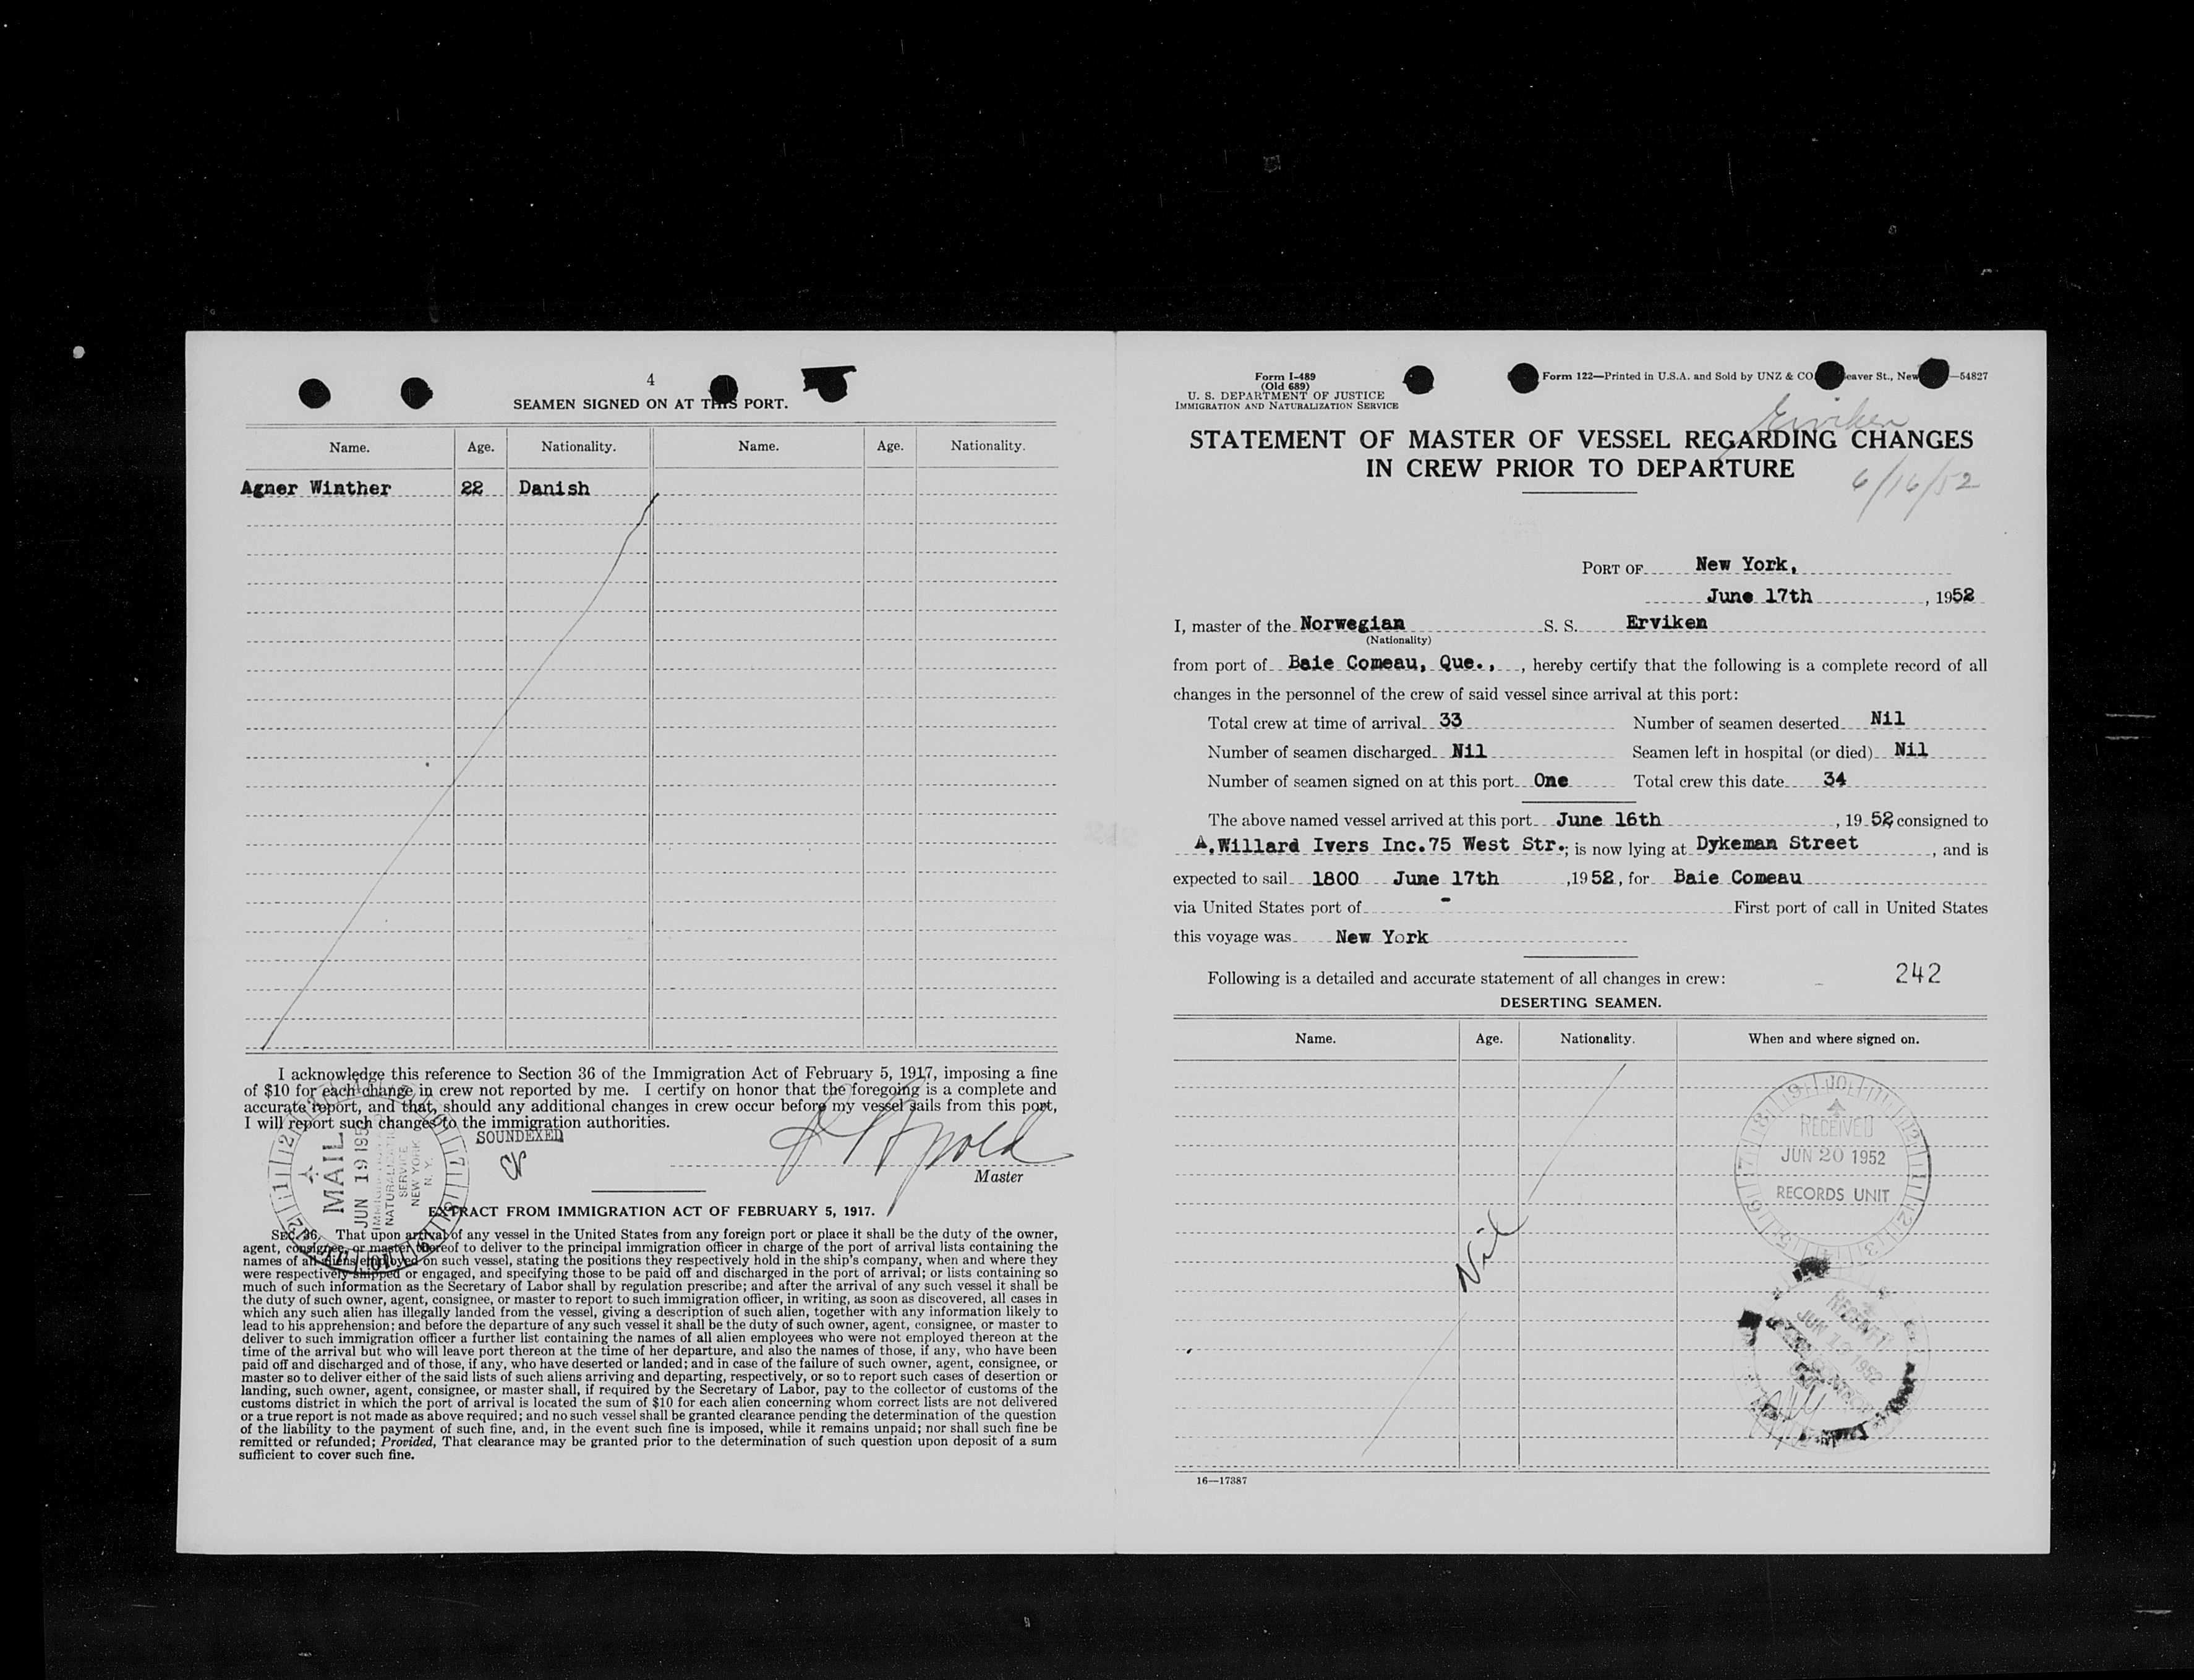 4
SEAMEN SIGNED ON AT THIS PORT.
Name. Age. Nationality. Name. Age. Nationality.
Agner Winther 22 Danish
I acknowledge this reference to Section 36 of the Immigration Act of February 5, 1917, imposing a fine
of $10 for each change in crew not reported by me. I certify on honor that the foregoing is a complete and
accurate report, and that, should any additional changes in crew occur before my vessel sails from this port,
I will report such changes to the immigration authorities.
SOUNDEXED
Master
MAIL
JUN 19 195
IMMIGRATION &
NATURALIZATION
SERVICE
NEW YORK
N. Y.
EXTRACT FROM IMMIGRATION ACT OF FEBRUARY 5, 1917.
SEC. 36. That upon arrival of any vessel in the United States from any foreign port or place it shall be the duty of the owner,
agent, consignee, or master thereof to deliver to the principal immigration officer in charge of the port of arrival lists containing the
names of all aliens employed on such vessel, stating the positions they respectively hold in the ship's company, when and where they
were respectively shipped or engaged, and specifying those to be paid off and discharged in the port of arrival; or lists containing so
much of such information as the Secretary of Labor shall by regulation prescribe; and after the arrival of any such vessel it shall be
the duty of such owner, agent, consignee, or master to report to such immigration officer, in writing, as soon as discovered, all cases in
which any such alien has illegally landed from the vessel, giving a description of such alien, together with any information likely to
lead to his apprehension; and before the departure of any such vessel it shall be the duty of such owner, agent, consignee, or master to
deliver to such immigration officer a further list containing the names of all alien employees who were not employed thereon at the
time of the arrival but who will leave port thereon at the time of her departure, and also the names of those, if any, who have been
paid off and discharged and of those, if any, who have deserted or landed; and in case of the failure of such owner, agent, consignee, or
master so to deliver either of the said lists of such aliens arriving and departing, respectively, or so to report such cases of desertion or
landing, such owner, agent, consignee, or master shall, if required by the Secretary of Labor, pay to the collector of customs of the
customs district in which the port of arrival is located the sum of $10 for each alien concerning whom correct lists are not delivered
or a true report is not made as above required; and no such vessel shall be granted clearance pending the determination of the question
of the liability to the payment of such fine, and, in the event such fine is imposed, while it remains unpaid; nor shall such fine be
remitted or refunded; Provided, That clearance may be granted prior to the determination of such question upon deposit of a sum
sufficient to cover such fine.
Form I-489
(Old 689)
U. S. DEPARTMENT OF JUSTICE
IMMIGRATION AND NATURALIZATION SERVICE
Form 122—Printed in U.S.A. and Sold by UNZ & CO. eaver St., New —54827
Erviken
STATEMENT OF MASTER OF VESSEL REGARDING CHANGES
IN CREW PRIOR TO DEPARTURE
6/16/52
PORT OF New York,
June 17th, 1952
I, master of the Norwegian S. S. Erviken
(Nationality)
from port of Baie Comeau, Que., , hereby certify that the following is a complete record of all
changes in the personnel of the crew of said vessel since arrival at this port:
Total crew at time of arrival 33 Number of seamen deserted Nil
Number of seamen discharged Nil Seamen left in hospital (or died) Nil
Number of seamen signed on at this port One Total crew this date 34
The above named vessel arrived at this port June 16th, 19 52 consigned to
A. Willard Ivers Inc. 75 West Str.; is now lying at Dykeman Street, and is
expected to sail 1800 June 17th, 1952, for Baie Comeau
via United States port of - First port of call in United States
this voyage was New York
Following is a detailed and accurate statement of all changes in crew: 242
DESERTING SEAMEN.
Name. Age. Nationality. When and where signed on.
RECEIVED
JUN 20 1952
RECORDS UNIT
Nil
16—17387